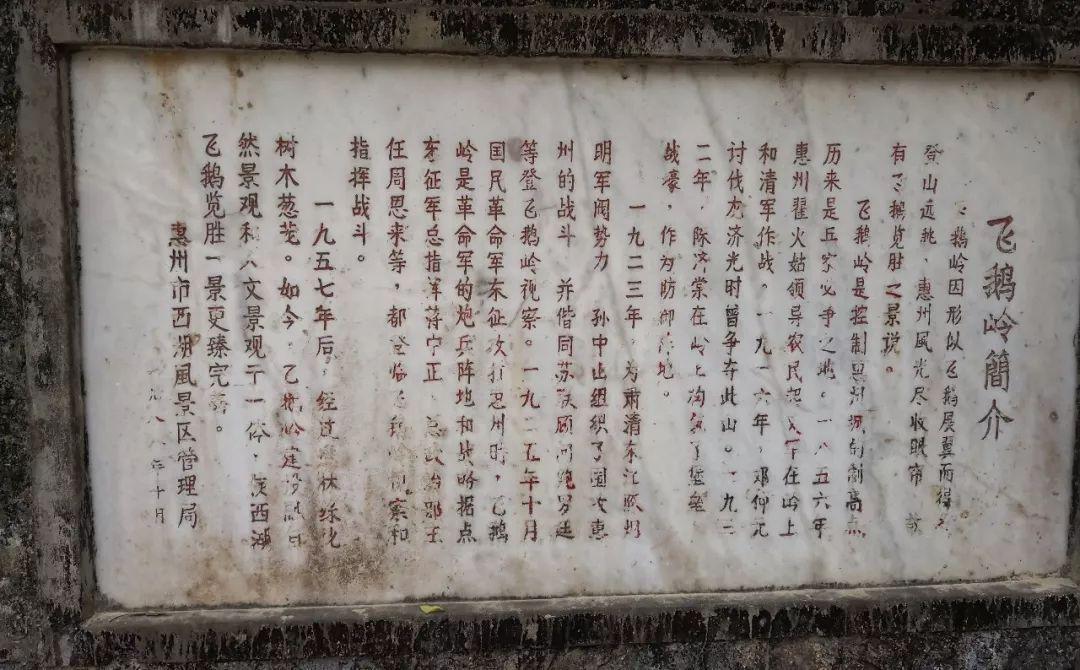 飞鹅岭简介
鹅岭因形似飞鹅展翼而得
登山远眺，惠州風光尽收眼帘 故
有飞鹅览胜之景说。
飞鹅岭是控制惠州城的制高点
历来是兵家必争之地。一八五六年
惠州翟火姑领导农民起义军在岭上
和清军作战。一九一六年，邓仲元
讨伐龙济光时曾争夺此山。一九二
二年，陈济棠在岭上沟筑了堡垒
战壕，作为防御阵地。
一九二三年，为肃清东江陈炯
明军阀势力 孙中山组织了围攻惠
州的战斗 并偕同苏联顾问鲍罗廷
等登飞鹅岭视察。一九二五年十月
国民革命军东征攻打惠州时，飞鹅
岭是革命军的炮兵阵地和战略据点
东征军总指挥蒋中正 总政治部主
任周恩来等，都登临飞鹅岭视察和
指挥战斗。
一九五七年后，经过造林绿化
树木葱茏。如今，飞鹅岭建设
然景观和人文景观于一体，使西湖
飞鹅览胜一景更臻完善。
惠州市西湖風景区管理局
八 年十月